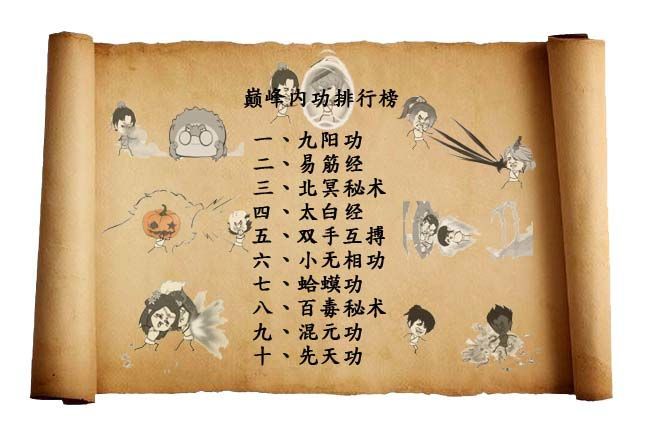 巅峰内功排行榜
一、九阳功
二、易筋经
三、北冥秘术
四、太白经
五、双手互搏
六、小无相功
七、蛤蟆功
八、百毒秘术
九、混元功
十、先天功